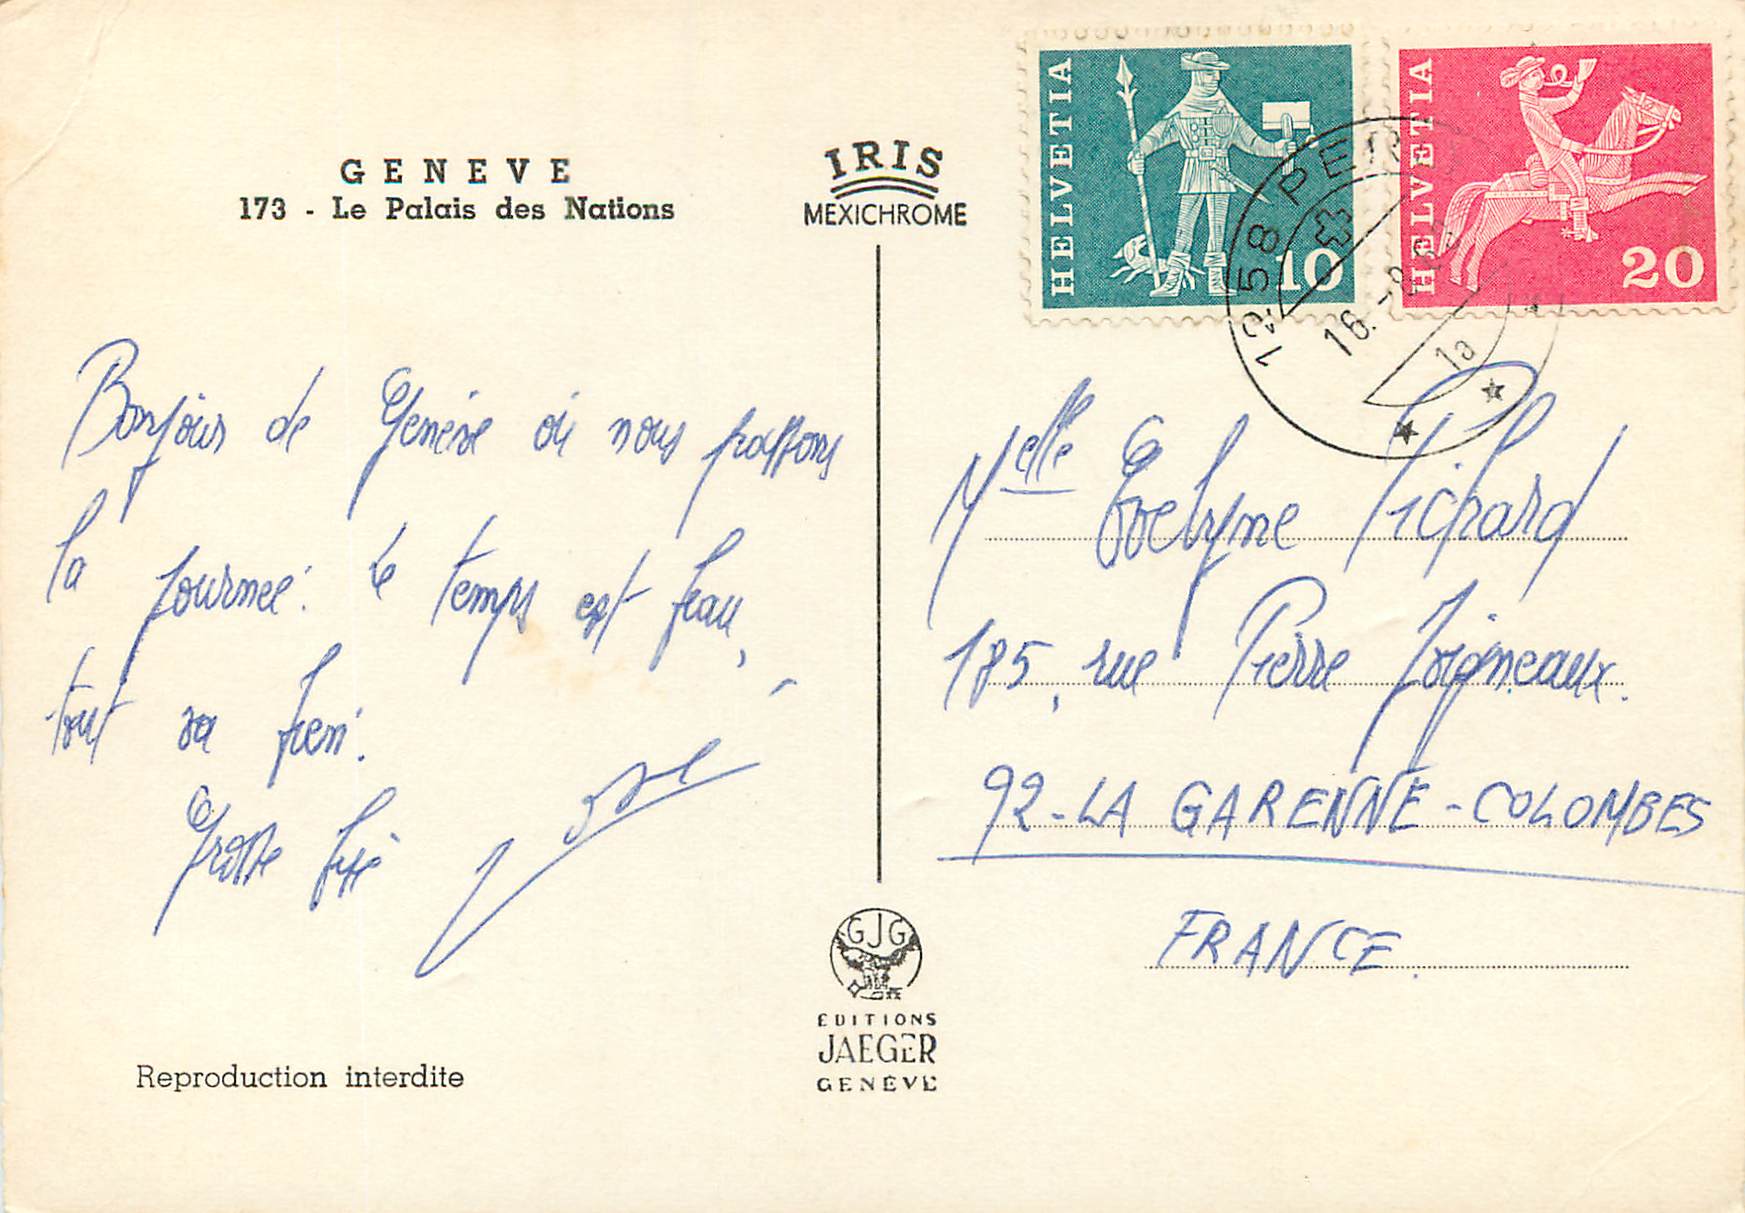 GENEVE
173 - Le Palais des Nations
IRIS
MEXICHROME
HELVETIA
10
HELVETIA
20
1258 PE
16.
1a
Bonjour de Genève où nous passons
la journée. Le temps est beau,
tout va bien.
Grosse bise
Melle Evelyne Pichard
185, rue Pierre Joigneaux.
92-LA GARENNE-COLOMBES
FRANCE.
GJG
EDITIONS
JAEGER
GENÈVE
Reproduction interdite